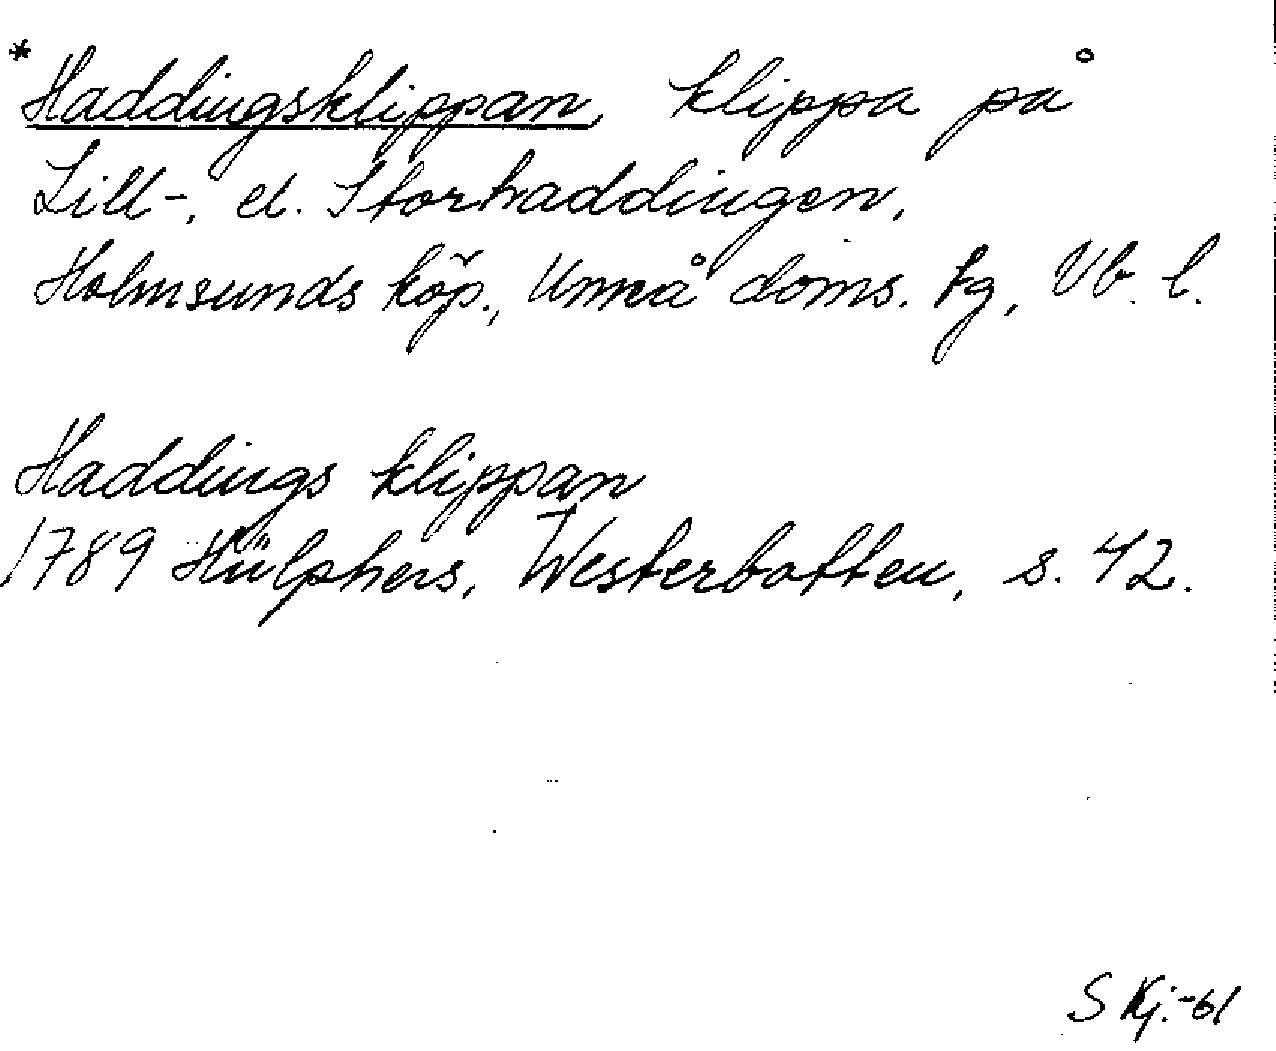 *Haddingsklippan, klippa på
Lill-, el. Storhaddingen,
Holmsunds köp., Umeå doms. tg, Vb. l.
Haddings klippan
1789 Hülphers, Westerbotten, s. 42.
S Kj.-61